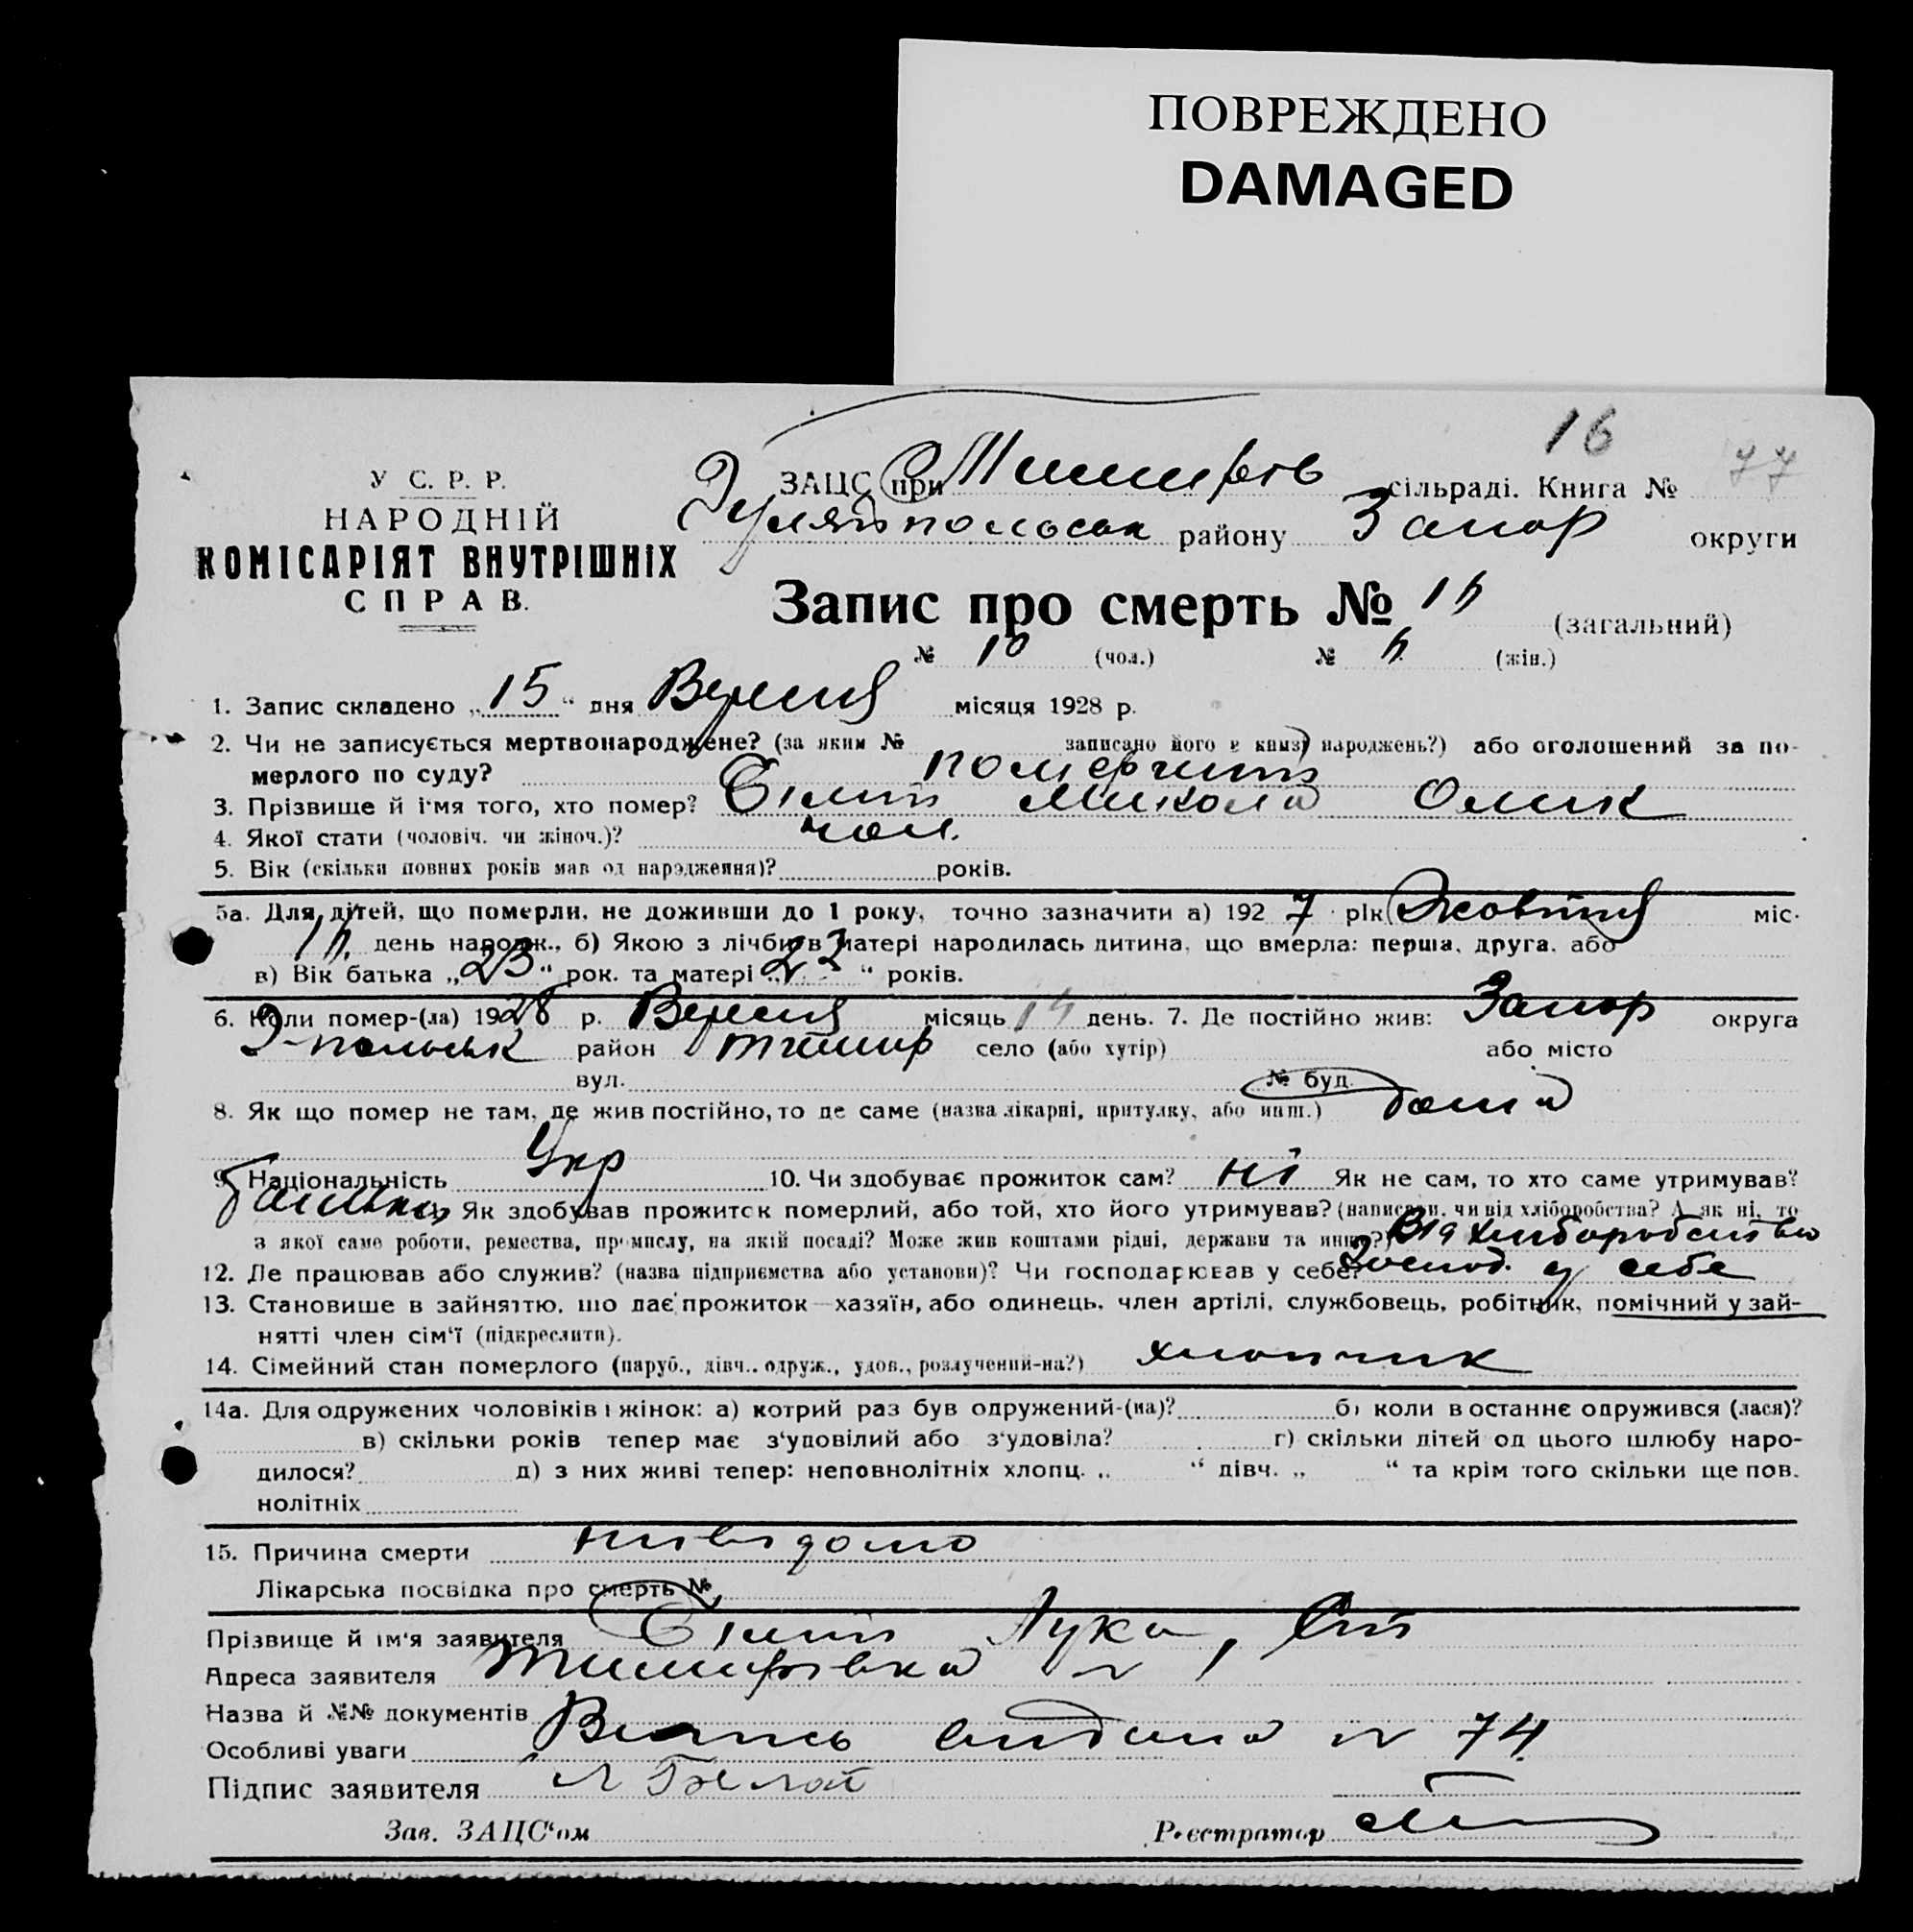 ПОВРЕЖДЕНО
DAMAGED
16
77
У С. Р. Р.
НАРОДНІЙ
КОМІСАРІЯТ ВНУТРІШНІХ
СПРАВ.
ЗАЦС при сільраді. Книга №
Гуляйпольськ району Запор округи
Запис про смерть № (загальний)
№ 10 (чол.) № (жін.)
1. Запис складено „ 15 “ дня Вересня місяця 1928 р.
2. Чи не записується мертвонароджене? (за яким № записано його в книзі народжень?) або оголошений за по-
мерлого по суду?
3. Прізвище й ім'я того, хто помер? Білий Микола
4. Якої стати (чоловіч. чи жіноч.)? чол.
5. Вік (скільки повних років мав од народження)? років.
5а. Для дітей, що померли, не доживши до 1 року, точно зазначити а) 192 7 рік Жовтня міс.
день народж., б) Якою з лічби в матері народилась дитина, що вмерла: перша, друга, або
в) Вік батька „ 23 “ рок. та матері „ 23 “ років.
6. Коли помер-(ла) 1928 р. Вересня місяць 14 день. 7. Де постійно жив: Запор округа
Г-польськ район село (або хутір) або місто
вул. № буд.
8. Як що помер не там, де жив постійно, то де саме (назва лікарні, притулку, або инш.) дома
9. Національність Укр 10. Чи здобуває прожиток сам? ні Як не сам, то хто саме утримував?
батько Як здобував прожиток померлий, або той, хто його утримував? (написати, чи від хліборобства? А як ні, то
з якої саме роботи, ремества, промислу, на якій посаді? Може жив коштами рідні, держави та инше?) Від хліборобства
12. Де працював або служив? (назва підприємства або установи)? Чи господарював у себе? Господ. у себе
13. Становище в зайняттю, що дає прожиток—хазяїн, або одинець, член артілі, службовець, робітник, помічний у зай-
нятті член сім'ї (підкреслити).
14. Сімейний стан померлого (паруб., дівч., одруж., удов., розлучений-на?) хлопчик
14а. Для одружених чоловіків і жінок: а) котрий раз був одружений-(на)? б) коли востаннє одружився (лася)?
в) скільки років тепер має з'удовілий або з'удовіла? г) скільки дітей од цього шлюбу наро-
дилося? д) з них живі тепер: неповнолітніх хлопц. „ “ дівч. „ “ та крім того скільки ще пов.
нолітніх
15. Причина смерти невідомо
Лікарська посвідка про смерть №
Прізвище й ім'я заявителя Білий Лука,
Адреса заявителя
Назва й №№ документів
Особливі уваги № 74
Підпис заявителя Л Белай
Зав. ЗАЦС'ом Реєстратор